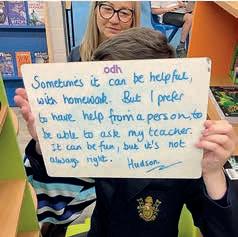 odh
Sometimes it can be helpful,
with homework. But I prefer
to have help from a person, to
be able to ask my teacher.
It can be fun, but it's not
always right. Hudson.